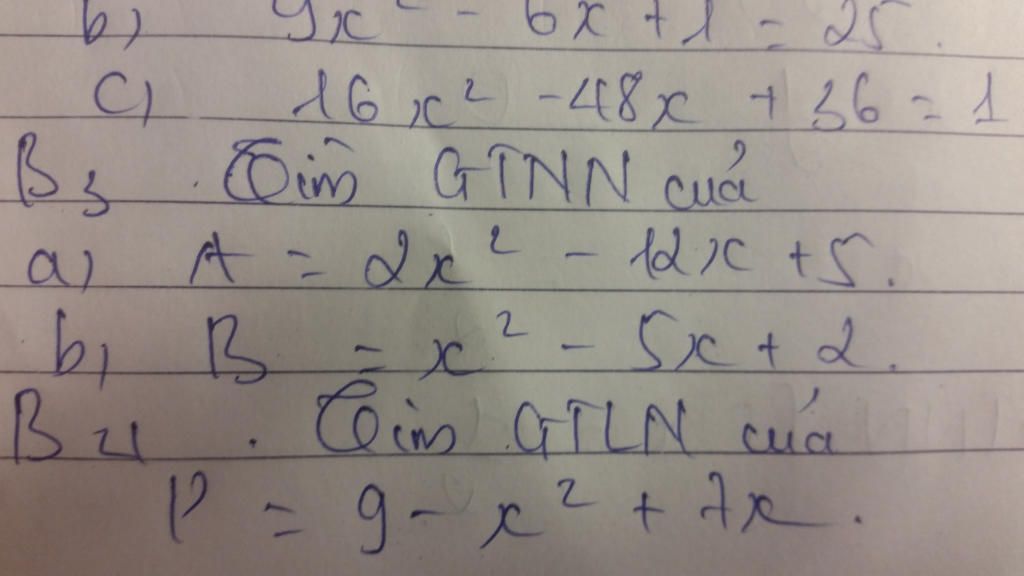 b) 9x² - 6x + 1 = 25.
c) 16x² - 48x + 36 = 1
B3. Tìm GTNN của
a) A = 2x² - 12x + 5.
b) B = x² - 5x + 2.
B4. Tìm GTLN của
P = 9 - x² + 7x.